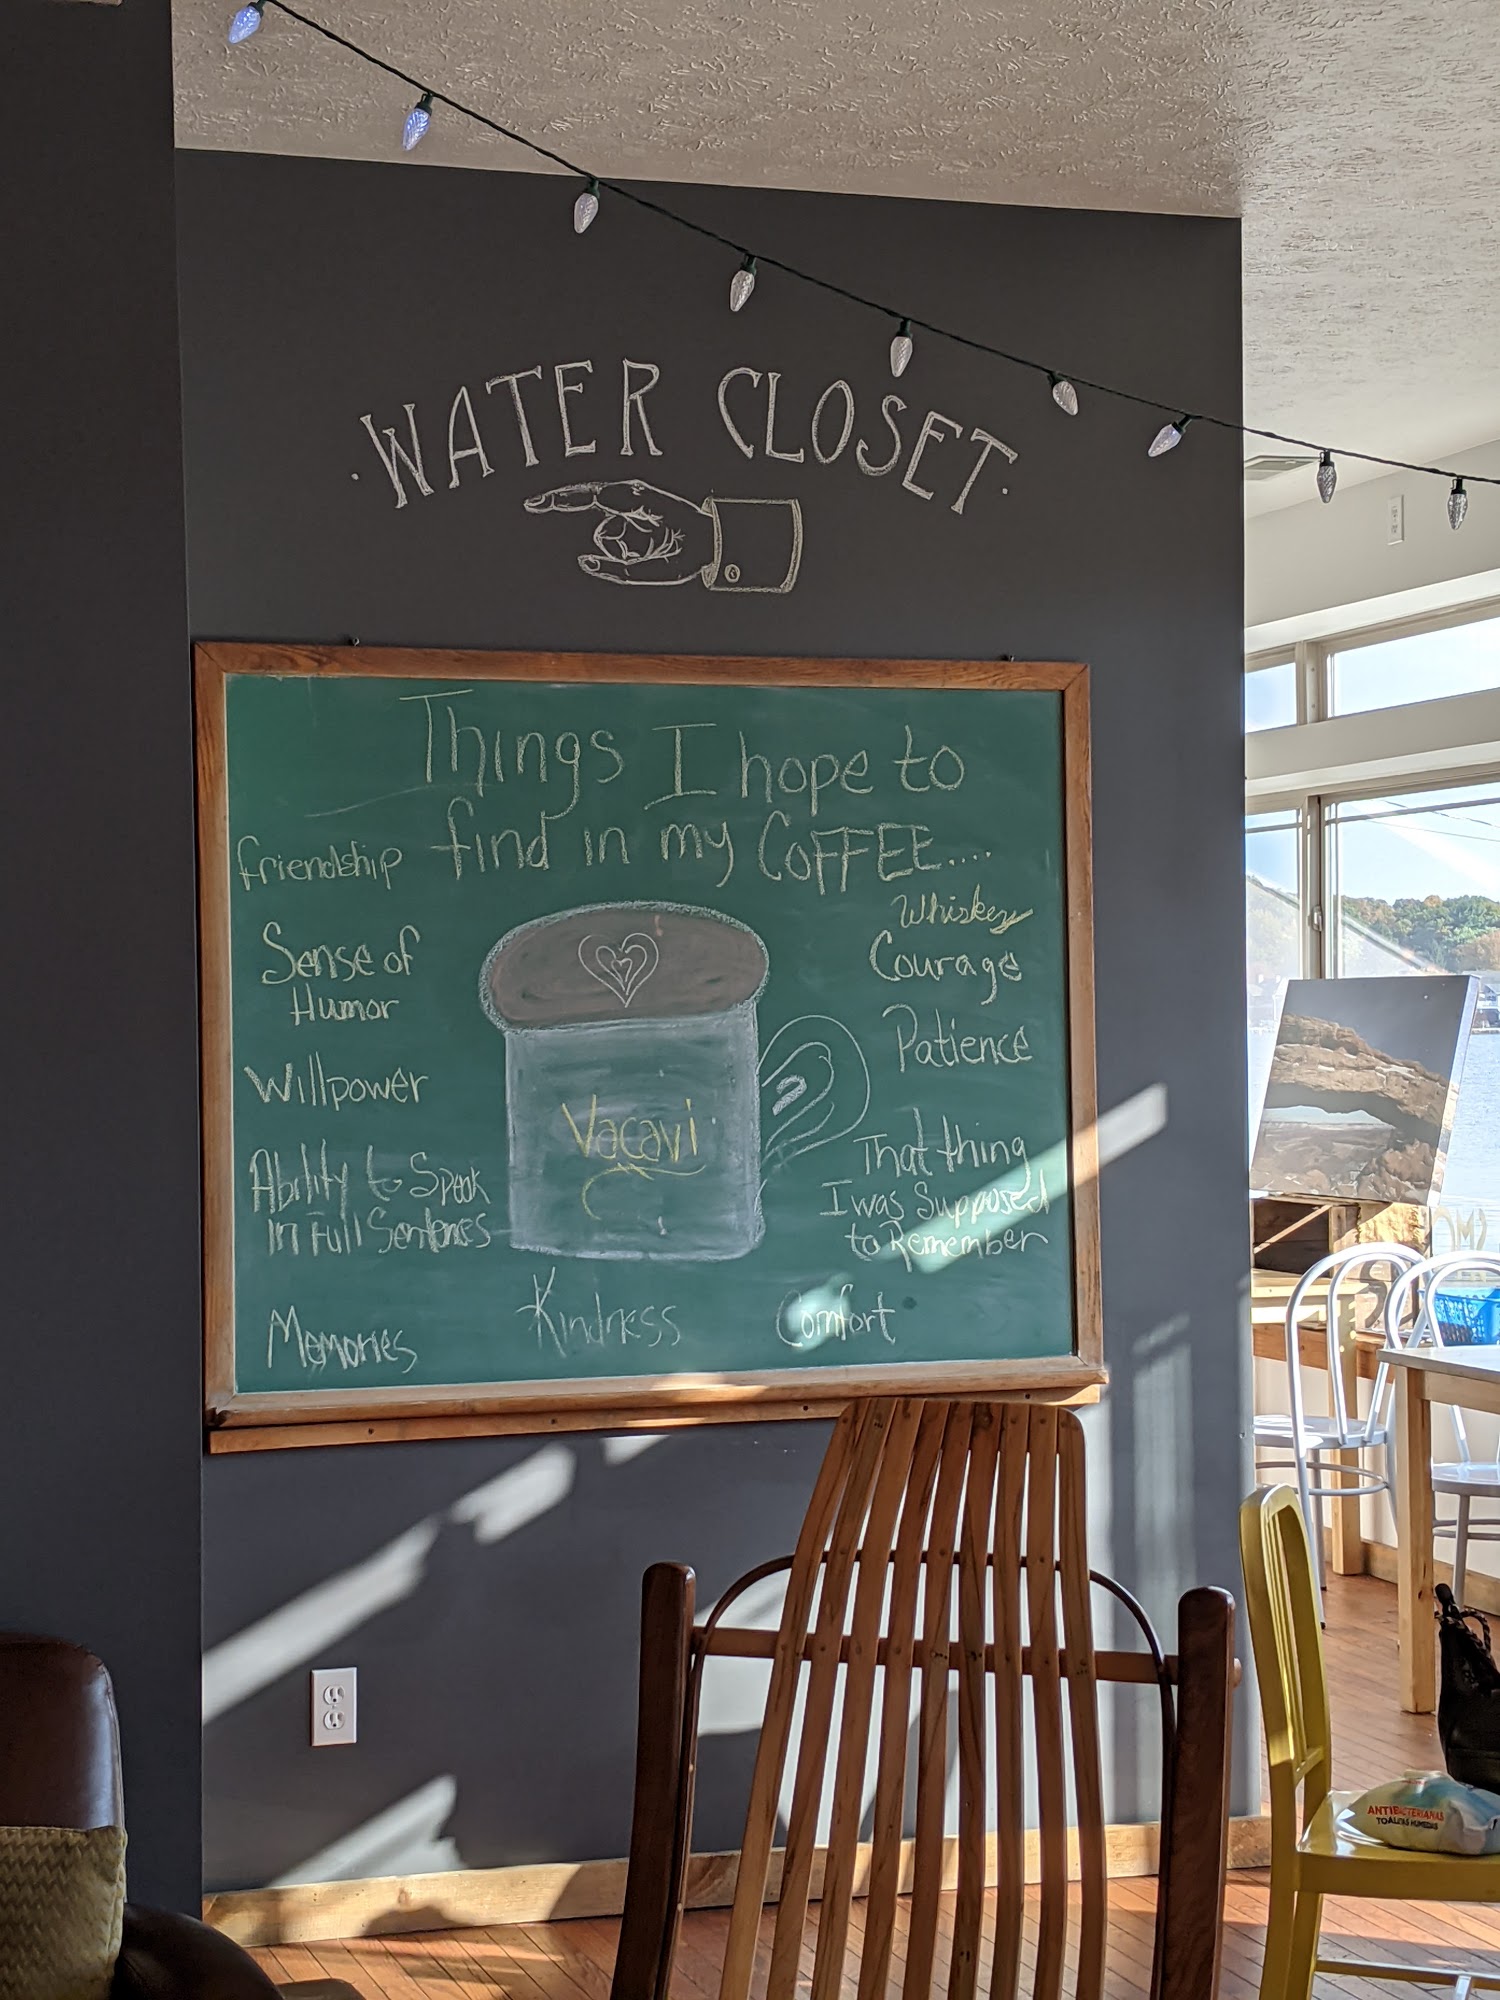 ·WATER CLOSET·
Things I hope to
find in my COFFEE....
friendship
Sense of
Humor
Willpower
Ability to Speak
in Full Sentences
Memories
Vacavi
Kindness
Comfort
Whiskey
Courage
Patience
That thing
I was Supposed
to Remember
ANTIBACTERIANAS
TOALLITAS HUMEDAS